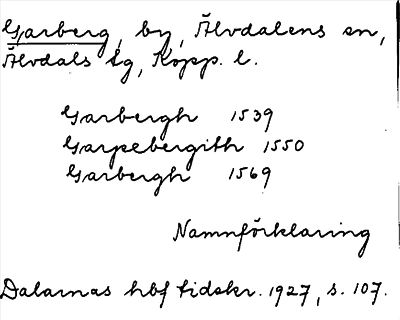 Garberg, by, Älvdalens sn,
Älvdals tg, Kopp. l.
Garbergh 1539
Garpebergith 1550
Garbergh 1569
Namnförklaring
Dalarnas hbf tidskr. 1927, s. 107.